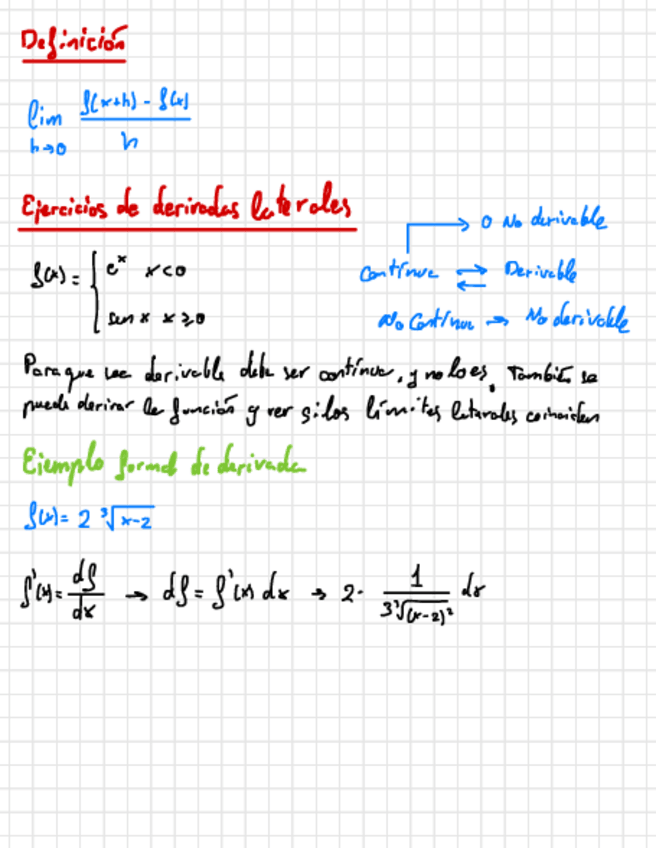 Definición
lim h→0 (f(x+h) - f(x)) / h
Ejercicios de derivadas laterales
→ o No derivable
Continua ⇄ Derivable
No Continua → No derivable
f(x) = { e^x x<0
sen x x≥0
Para que sea derivable debe ser continua, y no lo es. También se
puede derivar la función y ver si los límites laterales coinciden
Ejemplo formal de derivada
f(x) = 2 ∛(x-2)
f'(x) = df/dx → df = f'(x) dx → 2 · 1/(3∛(x-2)²) dx